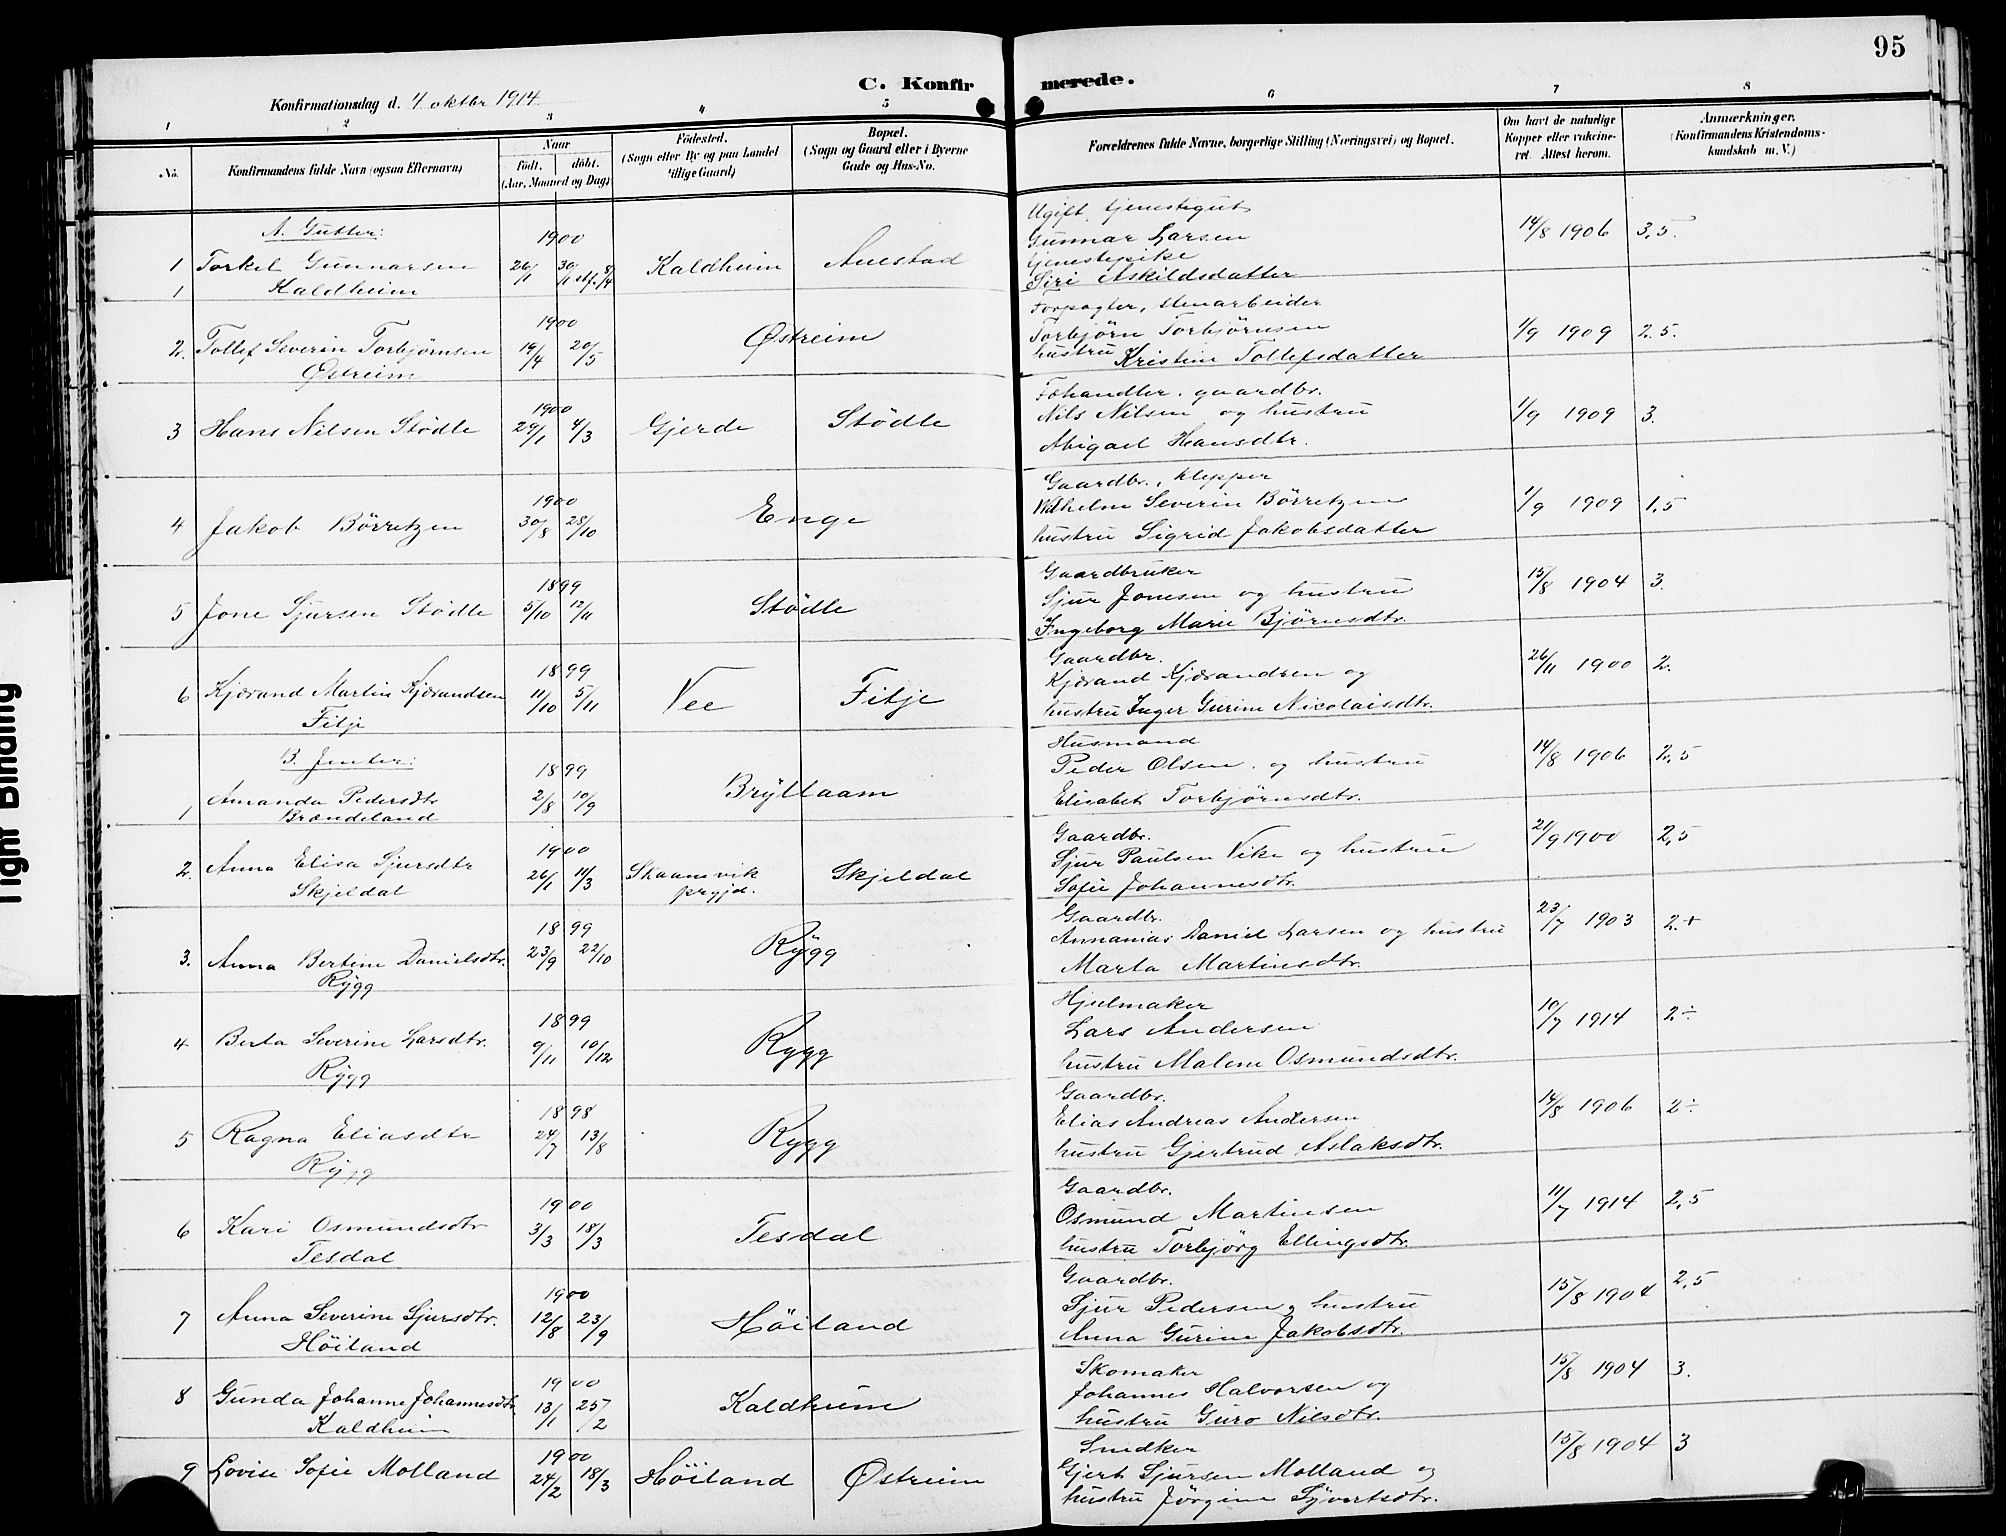 95
C. Konfirmerede.
Konfirmationsdag d. 4 oktbr 1914
1 2 3 4 5 6 7 8
No.
Konfirmandens fulde Navn (ogsaa Efternavn)
Naar
födt. döbt.
(Aar, Maaned og Dag)
Födested.
(Sogn eller By og paa Landet
tillige Gaard)
Bopæl.
(Sogn og Gaard eller i Byerne
Gade og Hus-No.
Forældrenes fulde Navne, borgerlige Stilling (Næringsvei) og Bopæl.
Om havt de naturlige
Kopper eller vakcine-
ret Attest herom.
Anmærkninger.
(Konfirmandens Kristendoms-
kundskab m. V.)
A. Gutter:
1 Torkel Gunnarsen
1 Kaldheim
1900
26/1 30/1 stf. 8/4
Kaldheim Auestad
Ugift tjenestegut
Gunnar Larsen
tjenestepike
Siri Askildsdatter
14/8 1906 3,5.
2. Tollef Severin Torbjørnsen
Østreim
1900
19/4 20/5
Østreim
Forpagter, stenarbeider
Torbjørn Torbjørnsen
hustru Kristine Tollefsdatter
1/9 1909 2.5.
3 Hans Nilsen Stödle
1900
29/1 4/3
Gjerde Stödle
Fehandler. gaardbr.
Nils Nilsen og hustru
Abigael Hansdtr.
1/9 1909 3.
4 Jakob Börretzen
1900
30/8 28/10
Enge
Gaardbr., klepper
Wilhelm Severin Börretzen
hustru Sigrid Jakobsdatter
1/9 1909 1,5
5 Jone Sjursen Stödle
1899
5/10 12/11
Stödle
Gaardbruker
Sjur Jonesen og hustru
Ingeborg Marie Bjørnsdtr.
15/8 1904 3.
6 Kjærand Martin Kjærandsen
Fitje
1899
11/10 5/11
Vee Fitje
Gaardbr.
Kjærand Kjærandsen og
hustru Inger Gurine Nicolaisdtr.
26/11 1900 2.
B. Jenter:
1 Amanda Pedersdtr
Brændeland
1899
2/8 10/9
Bryllaam
Husmand
Peder Olsen. og hustru
Elisabet Torbjørnsdtr.
14/8 1906 2,5
2. Anna Elisa Sjursdtr
Skjeldal
1900
26/1 11/3
Skaanevik
prgjd.
Skjeldal
Gaardbr.
Sjur Paulsen Vike og hustru
Sofie Johannesdtr.
21/9 1900 2,5
3. Anna Bertine Danielsdtr.
Rygg
1899
23/9 22/10
Rygg
Gaardbr.
Annanias Daniel Larsen og hustru
Marta Martinsdtr.
23/7 1903 2.+
4 Berta Severine Larsdtr.
Rygg
1899
9/11 10/12
Rygg
Hjulmaker
Lars Andersen
hustru Malene Osmundsdtr.
10/7 1914 2÷
5 Ragna Eliasdtr
Rygg
1898
24/7 13/8
Rygg
Gaardbr.
Elias Andreas Andersen
hustru Gjertrud Aslaksdtr.
14/8 1906 2÷
6 Kari Osmundsdtr
Tesdal
1900
3/3 18/3
Tesdal
Gaardbr.
Osmund Martinsen
hustru Torbjörg Ellingsdtr.
11/7 1914 2,5
7 Anna Severine Sjursdtr.
Höiland
1900
12/8 23/9
Höiland
Gaardbr.
Sjur Pedersen og hustru
Anna Gurine Jakobsdtr.
15/8 1904 2,5
8 Gunda Johanne Johannesdtr.
Kaldheim
1900
13/1 25/2
Kaldheim
Skomaker
Johannes Halvorsen og
hustru Guro Nilsdtr.
15/8 1904 3.
9 Lovise Sofie Molland
1900
24/2 18/3
Höiland Østreim
Snedker
Gjert Sjursen Molland og
hustru Jörgine Syvertsdtr.
15/8 1904 3
Tight Binding